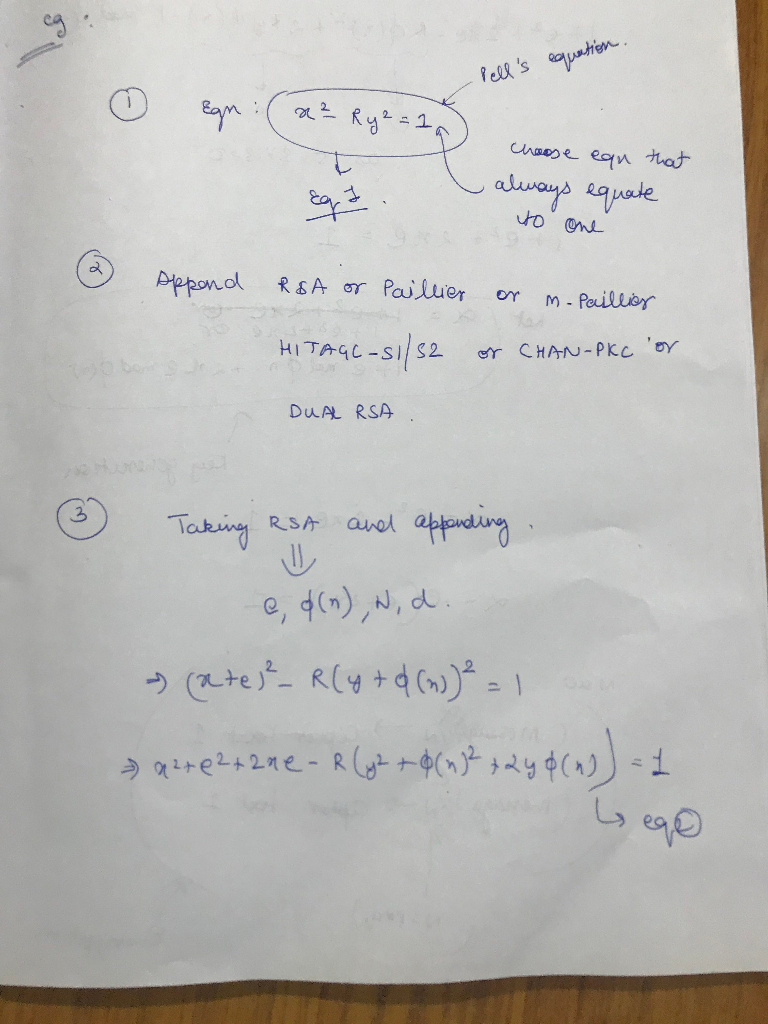 eg :
Pell's equation.
① Eqn : x² - Ry² = 1
Eq 1.
choose eqn that
always equate
to one
② Append RSA or Paillier or M-Paillier
HITAGC-S1/S2 or CHAN-PKC or
DUAL RSA.
③ Taking RSA and appending.
⇓
e, φ(n), N, d.
⇒ (x+e)² - R(y + φ(n))² = 1
⇒ x²+e²+2xe - R(y² + φ(n)² + 2yφ(n)) = 1
↳ eq ②